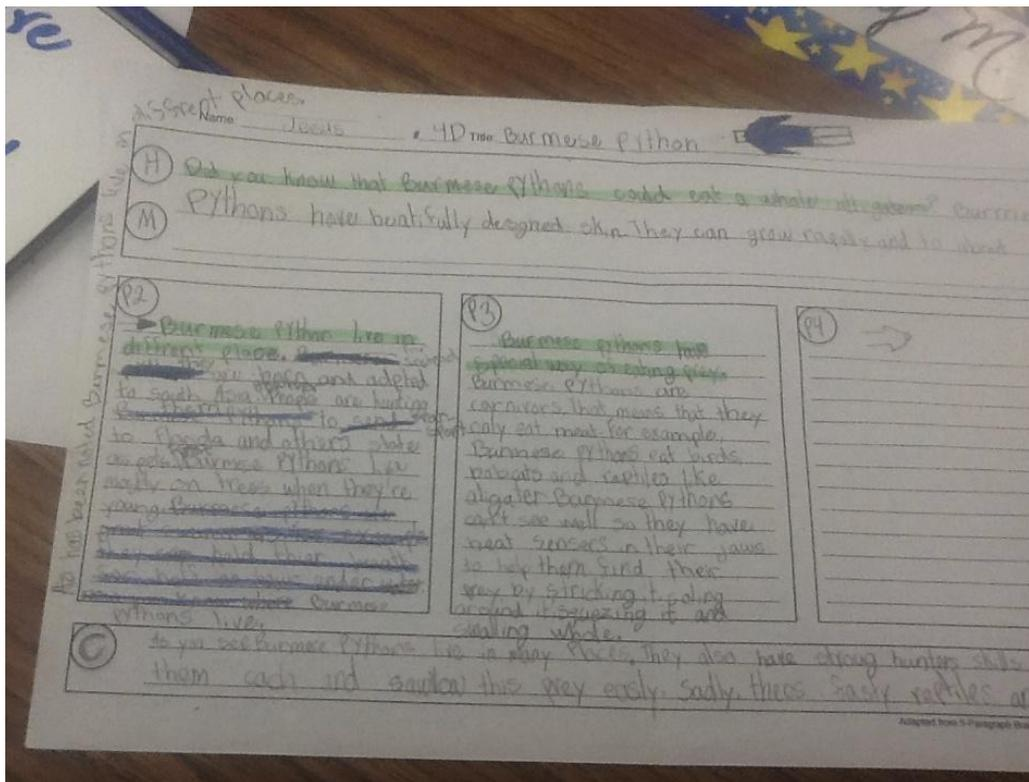 diffrent places.
Name Jesus . 4D Title Burmese Python
H Did you know that Burmese Pythons could eat a whole alligator? Burmese
M Pythons have beatifully designed skin. They can grow rapidly and to about
P2
Burmese Python live in
different place.
are born and adapted
to south Asia. People are hunting
to
to Florida and others state
as pets. Burmese Pythons live
mostly on trees when they're
young.
Burmese
pythons live.
P3
Burmese pythons have
special way of eating prey.
Burmese Pythons are
carnivors that means that they
only eat meat. for example,
Burmese Pythons eat birds,
bobcats and reptiles like
aligater Burmese Pythons
can't see well so they have
heat sensers in their jaws
to help them find their
prey by stricking it, coling
around it squezing it and
whole.
P4
As has been noted Burmese Pythons live in
C As you see Burmese Pythons live in many Places. They also have strong hunters skills
them cach and swallow this prey easly. Sadly, thees reptiles ar
Adapted from 5-Paragraph